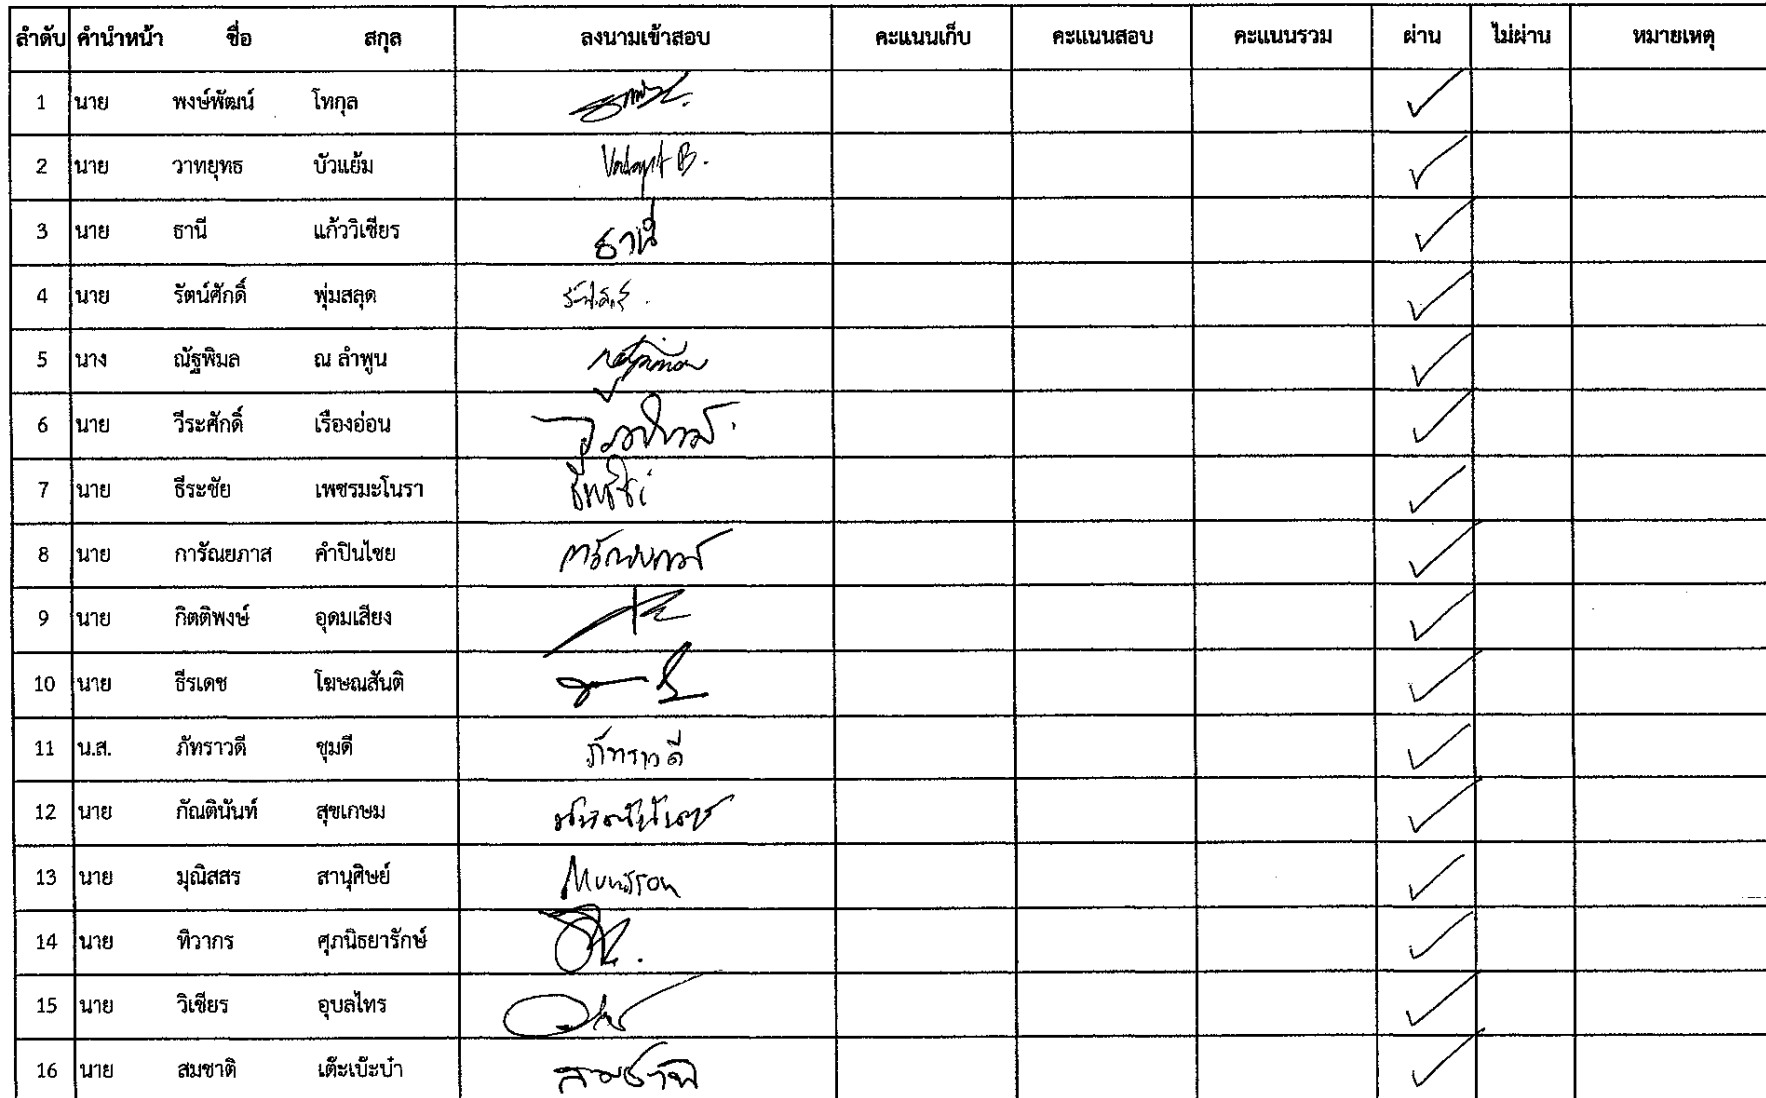 ลำดับ คำนำหน้า ชื่อ สกุล ลงนามเข้าสอบ คะแนนเก็บ คะแนนสอบ คะแนนรวม ผ่าน ไม่ผ่าน หมายเหตุ
1 นาย พงษ์พัฒน์ โทกุล ✓
2 นาย วาทยุทธ บัวแย้ม ✓
3 นาย ธานี แก้ววิเชียร ธานี ✓
4 นาย รัตน์ศักดิ์ พุ่มสลุด ✓
5 นาง ณัฐพิมล ณ ลำพูน ✓
6 นาย วีระศักดิ์ เรืองอ่อน ✓
7 นาย ธีระชัย เพชรมะโนรา ✓
8 นาย การัณยภาส คำปินไชย ✓
9 นาย กิตติพงษ์ อุดมเสียง ✓
10 นาย ธีรเดช โฆษณสันติ ✓
11 น.ส. ภัทราวดี ชุมดี ภัทราวดี ✓
12 นาย กัณตินันท์ สุขเกษม ✓
13 นาย มุณิสสร สานุศิษย์ ✓
14 นาย ทิวากร ศุภนิธยารักษ์ ✓
15 นาย วิเชียร อุบลไทร ✓
16 นาย สมชาติ เต๊ะเบ๊ะบ๋า สมชาติ ✓